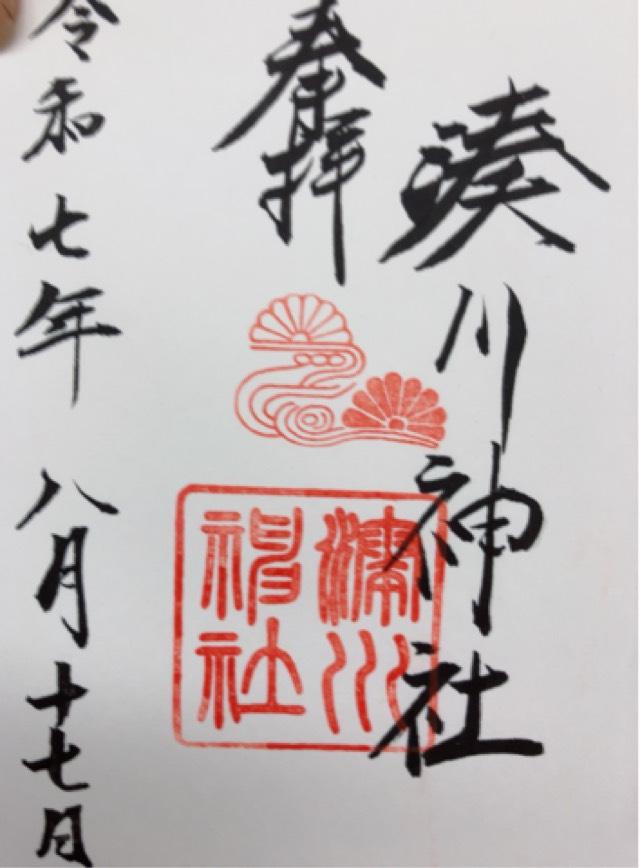 湊川神社
奉拝
湊川
神社
令和七年八月十七日